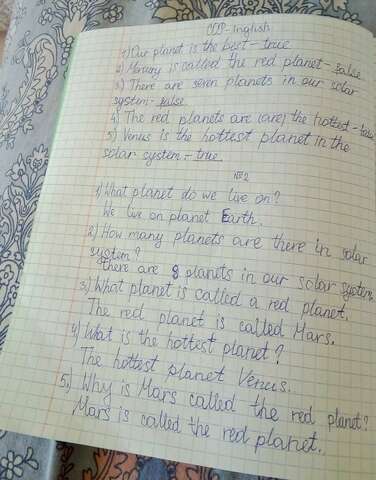 СОР-Inglish
1) Our planet is the best - true
2) Mercury is called the red planet - false
3) There are seven planets in our solar
system - false
4) The red planets are (are) the hottest - false
5) Venus is the hottest planet in the
solar system - true
№2
1) What planet do we live on?
We live on planet Earth.
2) How many planets are there in solar
system?
There are 8 planets in our solar system.
3.) What planet is called a red planet.
The red planet is called Mars.
4) What is the hottest planet?
The hottest planet Venus.
5.) Why is Mars called the red planet?
Mars is called the red planet.